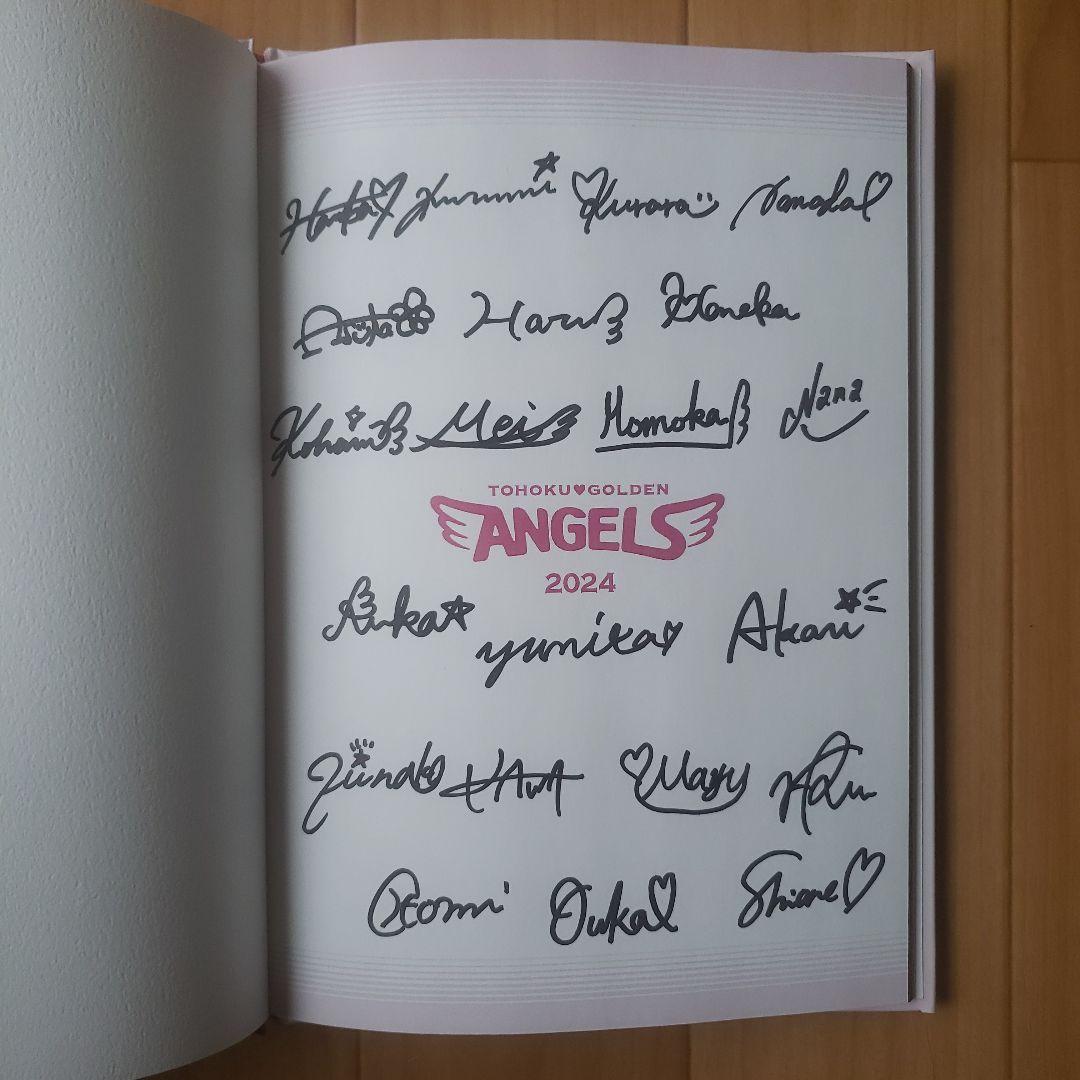 Haruka Kurumi Kurara
Haru Honoka
Koharu Mei Momoka Nana
TOHOKU♥GOLDEN
ANGELS
2024
Ruka yumika Akari
Yuna KAWA Mary
Satomi Ouka Shione